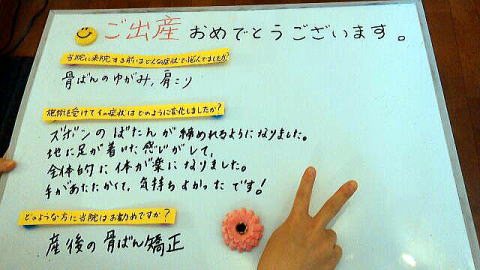 ご出産 おめでとうございます。
当院に来院する前はどんな症状で悩んでましたか?
骨ばんのゆがみ,肩こり
施術を受けてその症状はどのように変化しましたか?
ズボンのぼたんが締めれるようになりました。
地に足が着いた感じがして、
全体的に体が楽になりました。
手があたたかくて、気持ちよかったです!
どのような方に当院はお勧めですか?
産後の骨ばん矯正